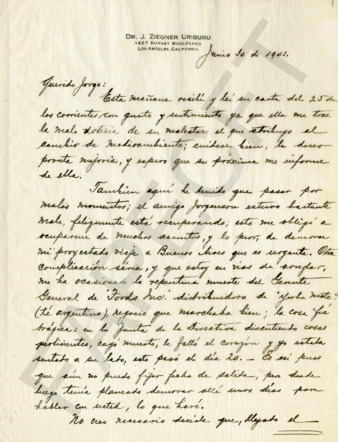 DR. J. ZIEGNER URIBURU
1427 SUNSET BOULEVARD
LOS ANGELES, CALIFORNIA
Junio 30 de 1941.
Querido Jorge:
Esta mañana recibí y leí su carta del 25 de
los corrientes, con gusto y sentimiento ya que ella me trae
la mala noticia de su malestar el que atribuyo al
cambio de medioambiente; cuidese bien, le deseo
pronta mejoria, y espero que su proxima me informe
de ella.
Tambien aquí he tenido que pasar por
malos momentos; el amigo Jorgenson estuvo bastante
mal, felizmente está recuperando; esto me obligó a
ocuparme de muchos asuntos, y lo peor, de demorar
mi proyectado viaje a Buenos Aires que es urgente. Otra
complicación seria, y que estoy en vías de arreglar,
me ha ocasionado la repentina muerte del Gerente
General de Foods Inc. distribuidora de "Yerba Mate"
(té argentino), negocio que marchaba bien; la cosa fué
trágica: en la Junta de la Directiva discutiendo cosas
pertinentes, cayó muerto, le falló el corazón y yo estaba
sentado a su lado, esto pasó el día 20. - Es así pues
que aún no puedo fijar fecha de salida, pero desde
luego tenía planeado demorar allí unos días para
hablar con usted, lo que haré.
No creo necesario decirle que, llegado el